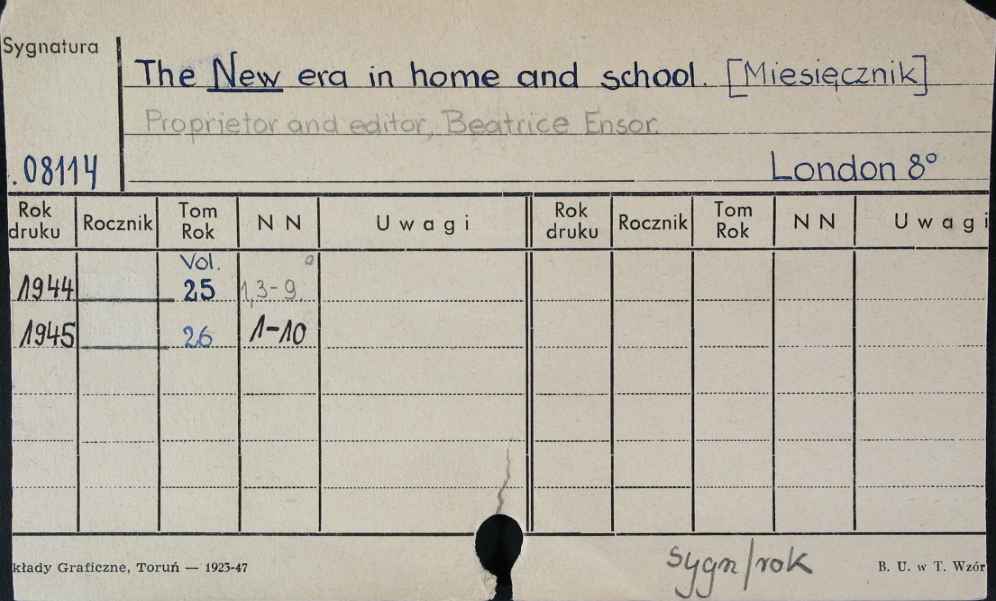 Sygnatura
The New era in home and school. [Miesięcznik]
Proprietor and editor, Beatrice Ensor.
.08114
London 8°
Rok druku Rocznik Tom Rok N N Uwagi Rok druku Rocznik Tom Rok N N Uwagi
Vol.
1944 25 1,3-9.
1945 26 1-10
sygn/rok
kłady Graficzne, Toruń — 1923-47 B. U. w T. Wzór